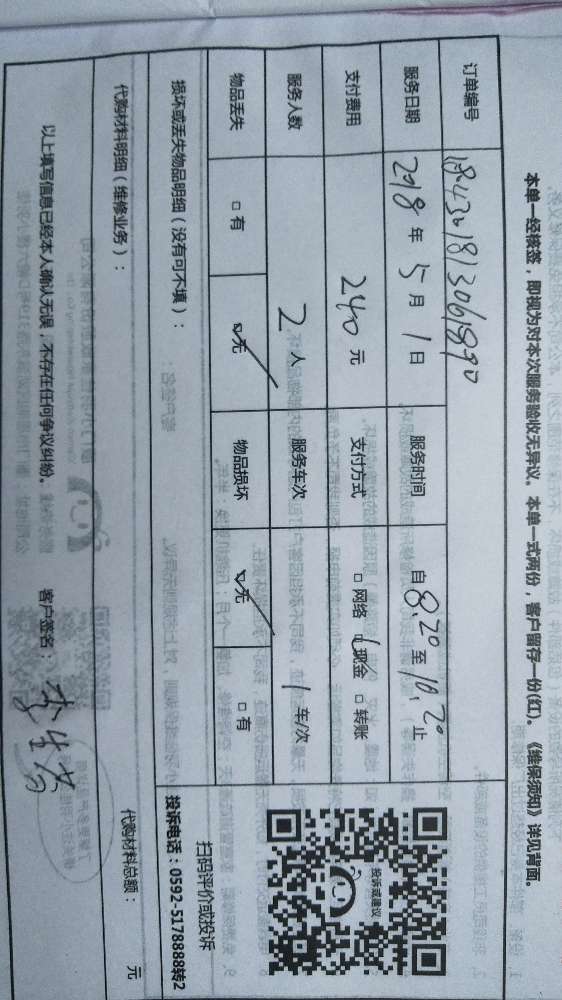 本单一经核签，即视为对本次服务验收无异议。 本单一式两份，客户留存一份(红)。 《维保须知》详见背面。
订单编号
服务日期 2018 年 5 月 1 日 服务时间 自 8:20 至 10:20 止
支付费用 240 元 支付方式 □ 网络 □ 现金 □ 转账
服务人数 2 人 服务车次 1 车/次
物品丢失 □ 有 □ 无 物品损坏 □ 无 □ 有
投诉或建议
扫码评价或投诉
投诉电话：0592-5178888转2
损坏或丢失物品明细（没有可不填）：
代购材料明细（维修业务）： 代购材料总额： 元
以上填写信息已经本人确认无误，不存在任何争议纠纷。 客户签名：